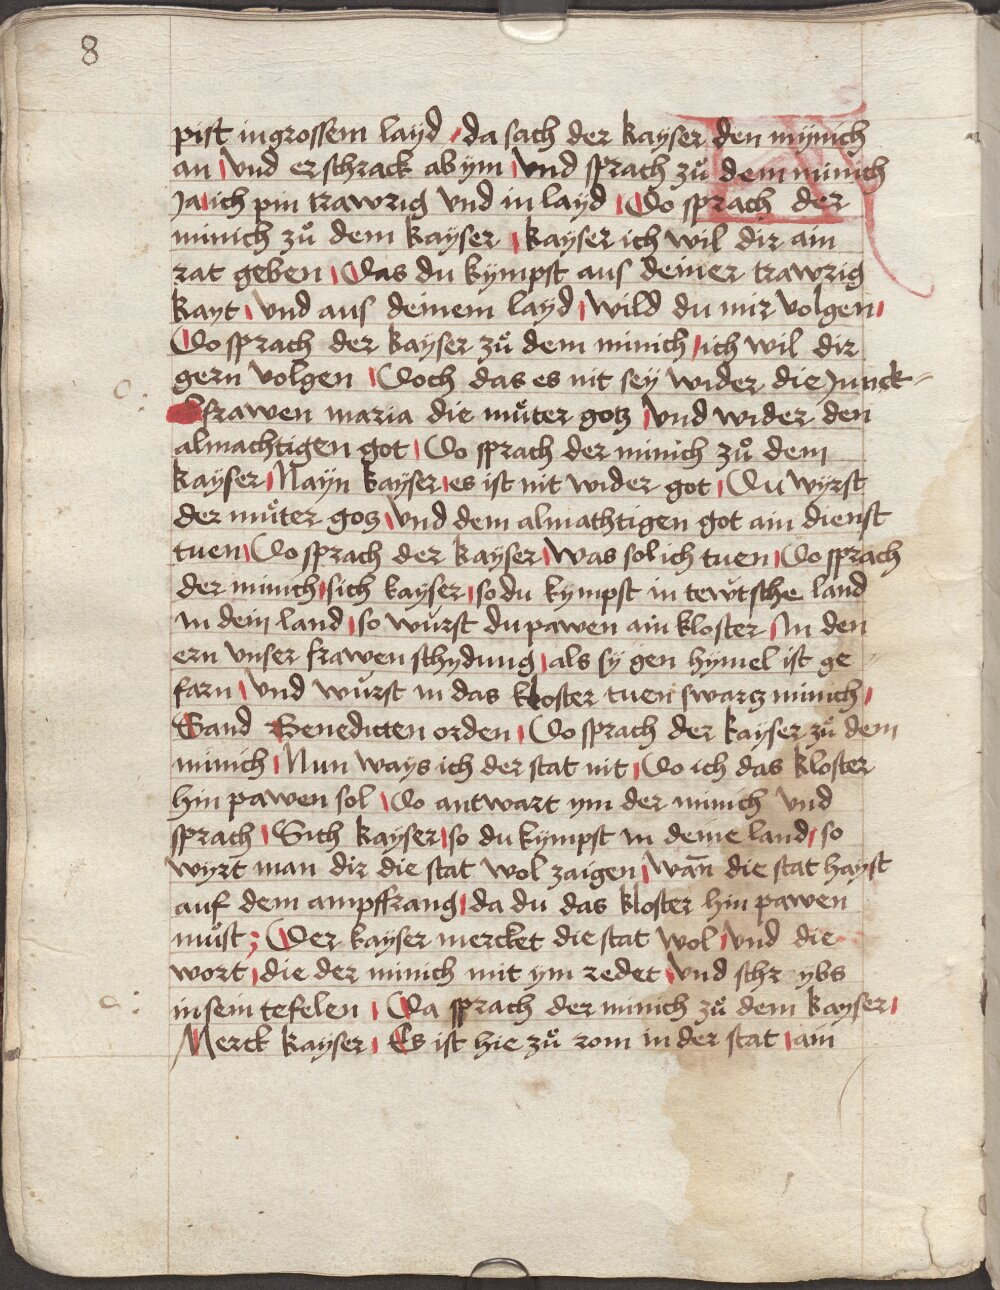 8
pist in grossem layd / da sach der kayser den mÿnich
an / vnd erschrack ab ym / vnd sprach zů dem minich
Ja ich pin trawrig vnd in layd / Do sprach der
minich zů dem kayser / kayser ich wil dir ain
rat geben / Das du kÿmpst aus deiner trawrig
kayt / vnd aus deinem layd / wild du mir volgen /
Do sprach der kayser zů dem minich / ich wil dir
gern volgen / Doch das es nit seÿ wider die Junck-
frawen maria die můter gotz / vnd wider den
almachtigen got / Do sprach der minich zů dem
kayser / Nayn kayser / es ist nit wider got / Du wÿrst
der můter gotz / vnd dem almathtigen got ain dienst
tuen / Do sprach der kayser / was sol ich tuen / Do sprach
der minich / sich kayser / so du kÿmpst in tewtsche land
in dein land / so wůrst du pawen ain kloster / In den
ern vnser frawen schydung / als sÿ gen hÿmel ist ge-
farn / vnd wůrst in das kloster tuen swartz minich /
Sand Benedicten orden / Do sprach der kayser zů dem
minich / Nun ways ich der stat nit / Do ich das kloster
hin pawen sol / Do antwart ym der minich vnd
sprach / Sich kayser / so du kympst in deine land / so
wyrt man dir die stat wol zaigen / wan̄ die stat hayst
auf dem ampffrang / da du das kloster hin pawen
můst ; Der kayser mercket die stat wol / vnd die
wort / die der minich mit ym redet / vnd schr ybs
in sein tefelen / Da sprach der minich zů dem kayser /
Merck kayser / Es ist hie zů rom in der stat / ain